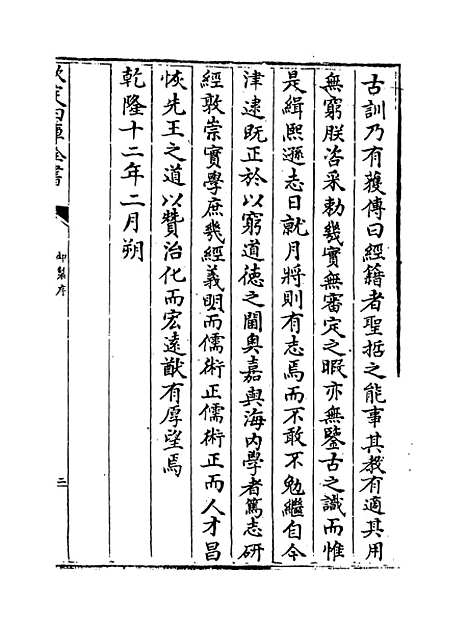 古訓乃有獲傳曰經籍者聖哲之能事其教有適其用
無窮朕咨采勅幾實無審定之暇亦無鑒古之識而惟
是緝熙遜志日就月將則有志焉而不敢不勉繼自今
津逮既正於以窮道徳之閫奥嘉與海内學者篤志研
經敦崇實學庶幾經義明而儒術正儒術正而人才昌
恢先王之道以贊治化而宏遠猷有厚望焉
乾隆十二年二月朔
欽定四庫全書
御製序
二